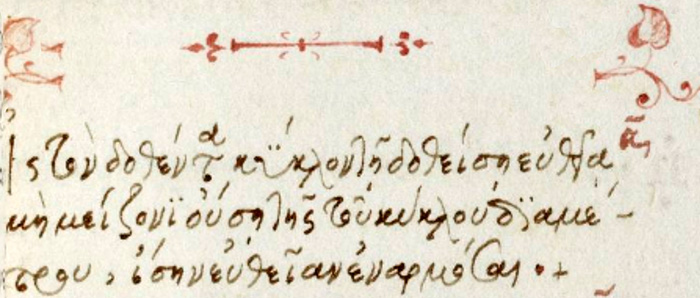 ἰς τὸν δοθέντα κύκλον τῆ δοθείση εὐθεία
μὴ μείζονι οὔση τῆς τοῦ κύκλου διαμέ-
τρου, ἴσην εὐθεῖαν ἐναρμόσαι·+